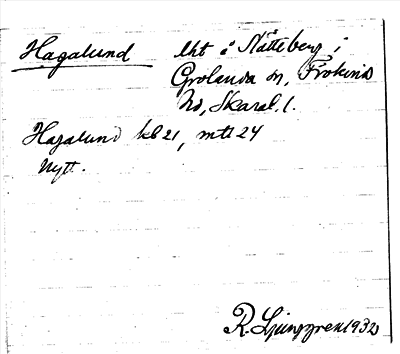 Hagalund lht å Nätteberg i
Grolanda sn, Frökinds
hd, Skarab. l.
Hagalund kb 21, mtl 24
Nytt.
R. Ljunggren 1932